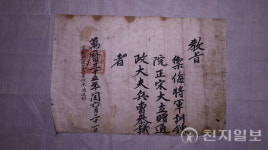 敎旨
禦侮將軍訓鍊
院正宋大立贈通
政大夫兵曹參議
者
萬曆三十五年閏六月
천지일보